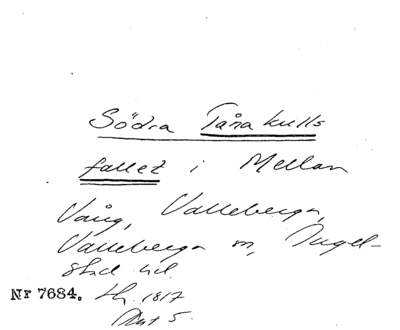 Södra Tåra kulls
fallet i Mellan
Vång, Valleberga,
Valleberga sn, Ingel-
stad hd.
Nr 7684. 1817
5.